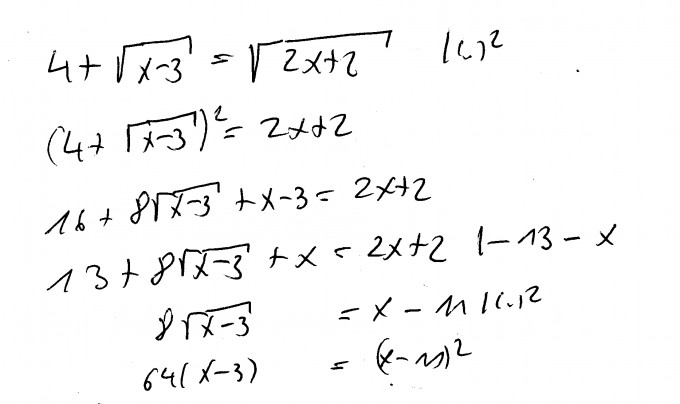 4+√(x-3) = √(2x+2) |(.)²
(4+√(x-3))² = 2x+2
16+8√(x-3) +x-3 = 2x+2
13+8√(x-3) +x = 2x+2 |-13-x
8√(x-3) = x-11 |(.)²
64(x-3) = (x-11)²